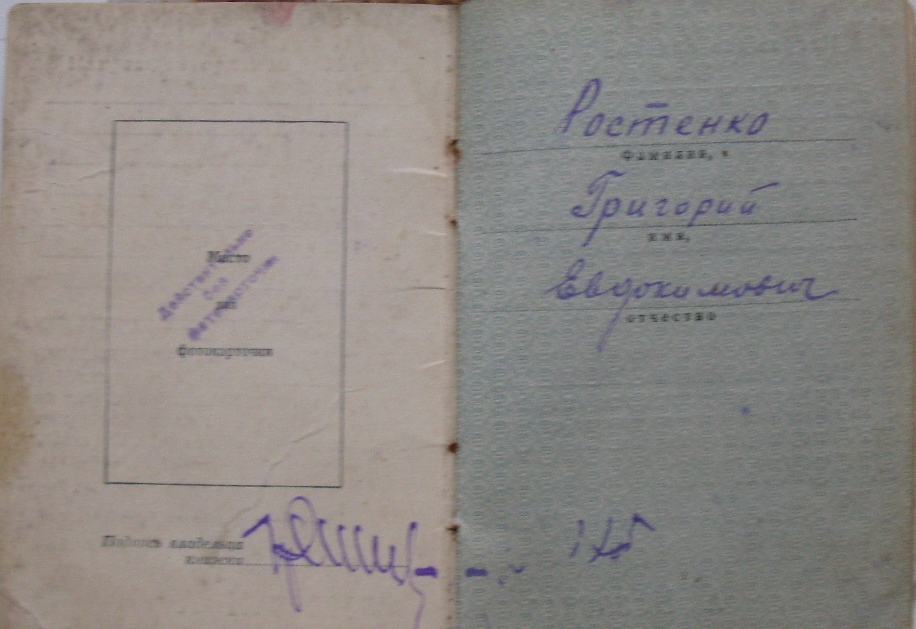 Место
для
фотокарточки
Действительно
без
фотокарточки
Подпись владельца
книжки
Ростенко
фамилия,
Григорий
имя,
Евдокимович
отчество